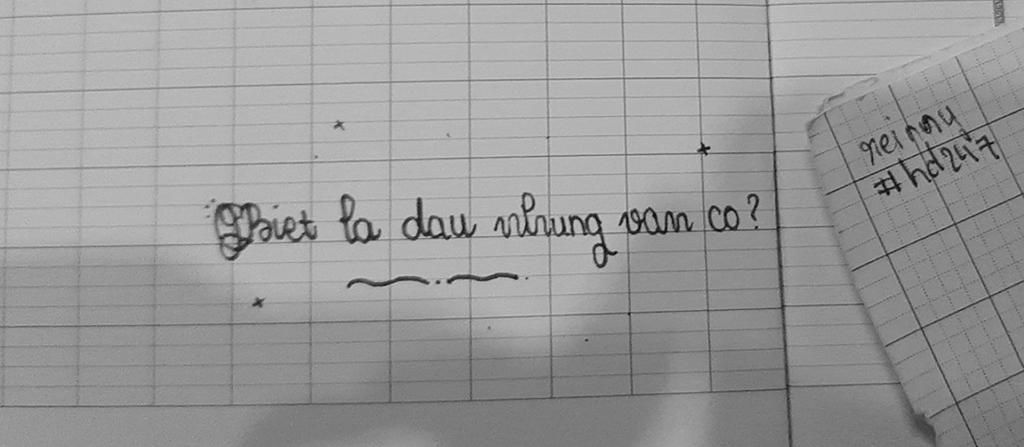 Biet la dau nhung van co?
reinny
#hd247